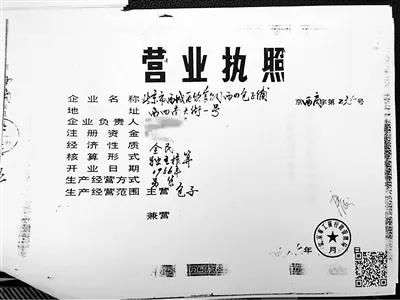 营业执照
企业名称 北京市西城区饮食公司西四包子铺
京西商字第 号
地址 西四南大街一号
企业负责人
注册资金
经济性质 全民
核算形式 独立核算
开业日期 1956年
生产经营方式
生产经营范围 主营 包子
兼营
年 月